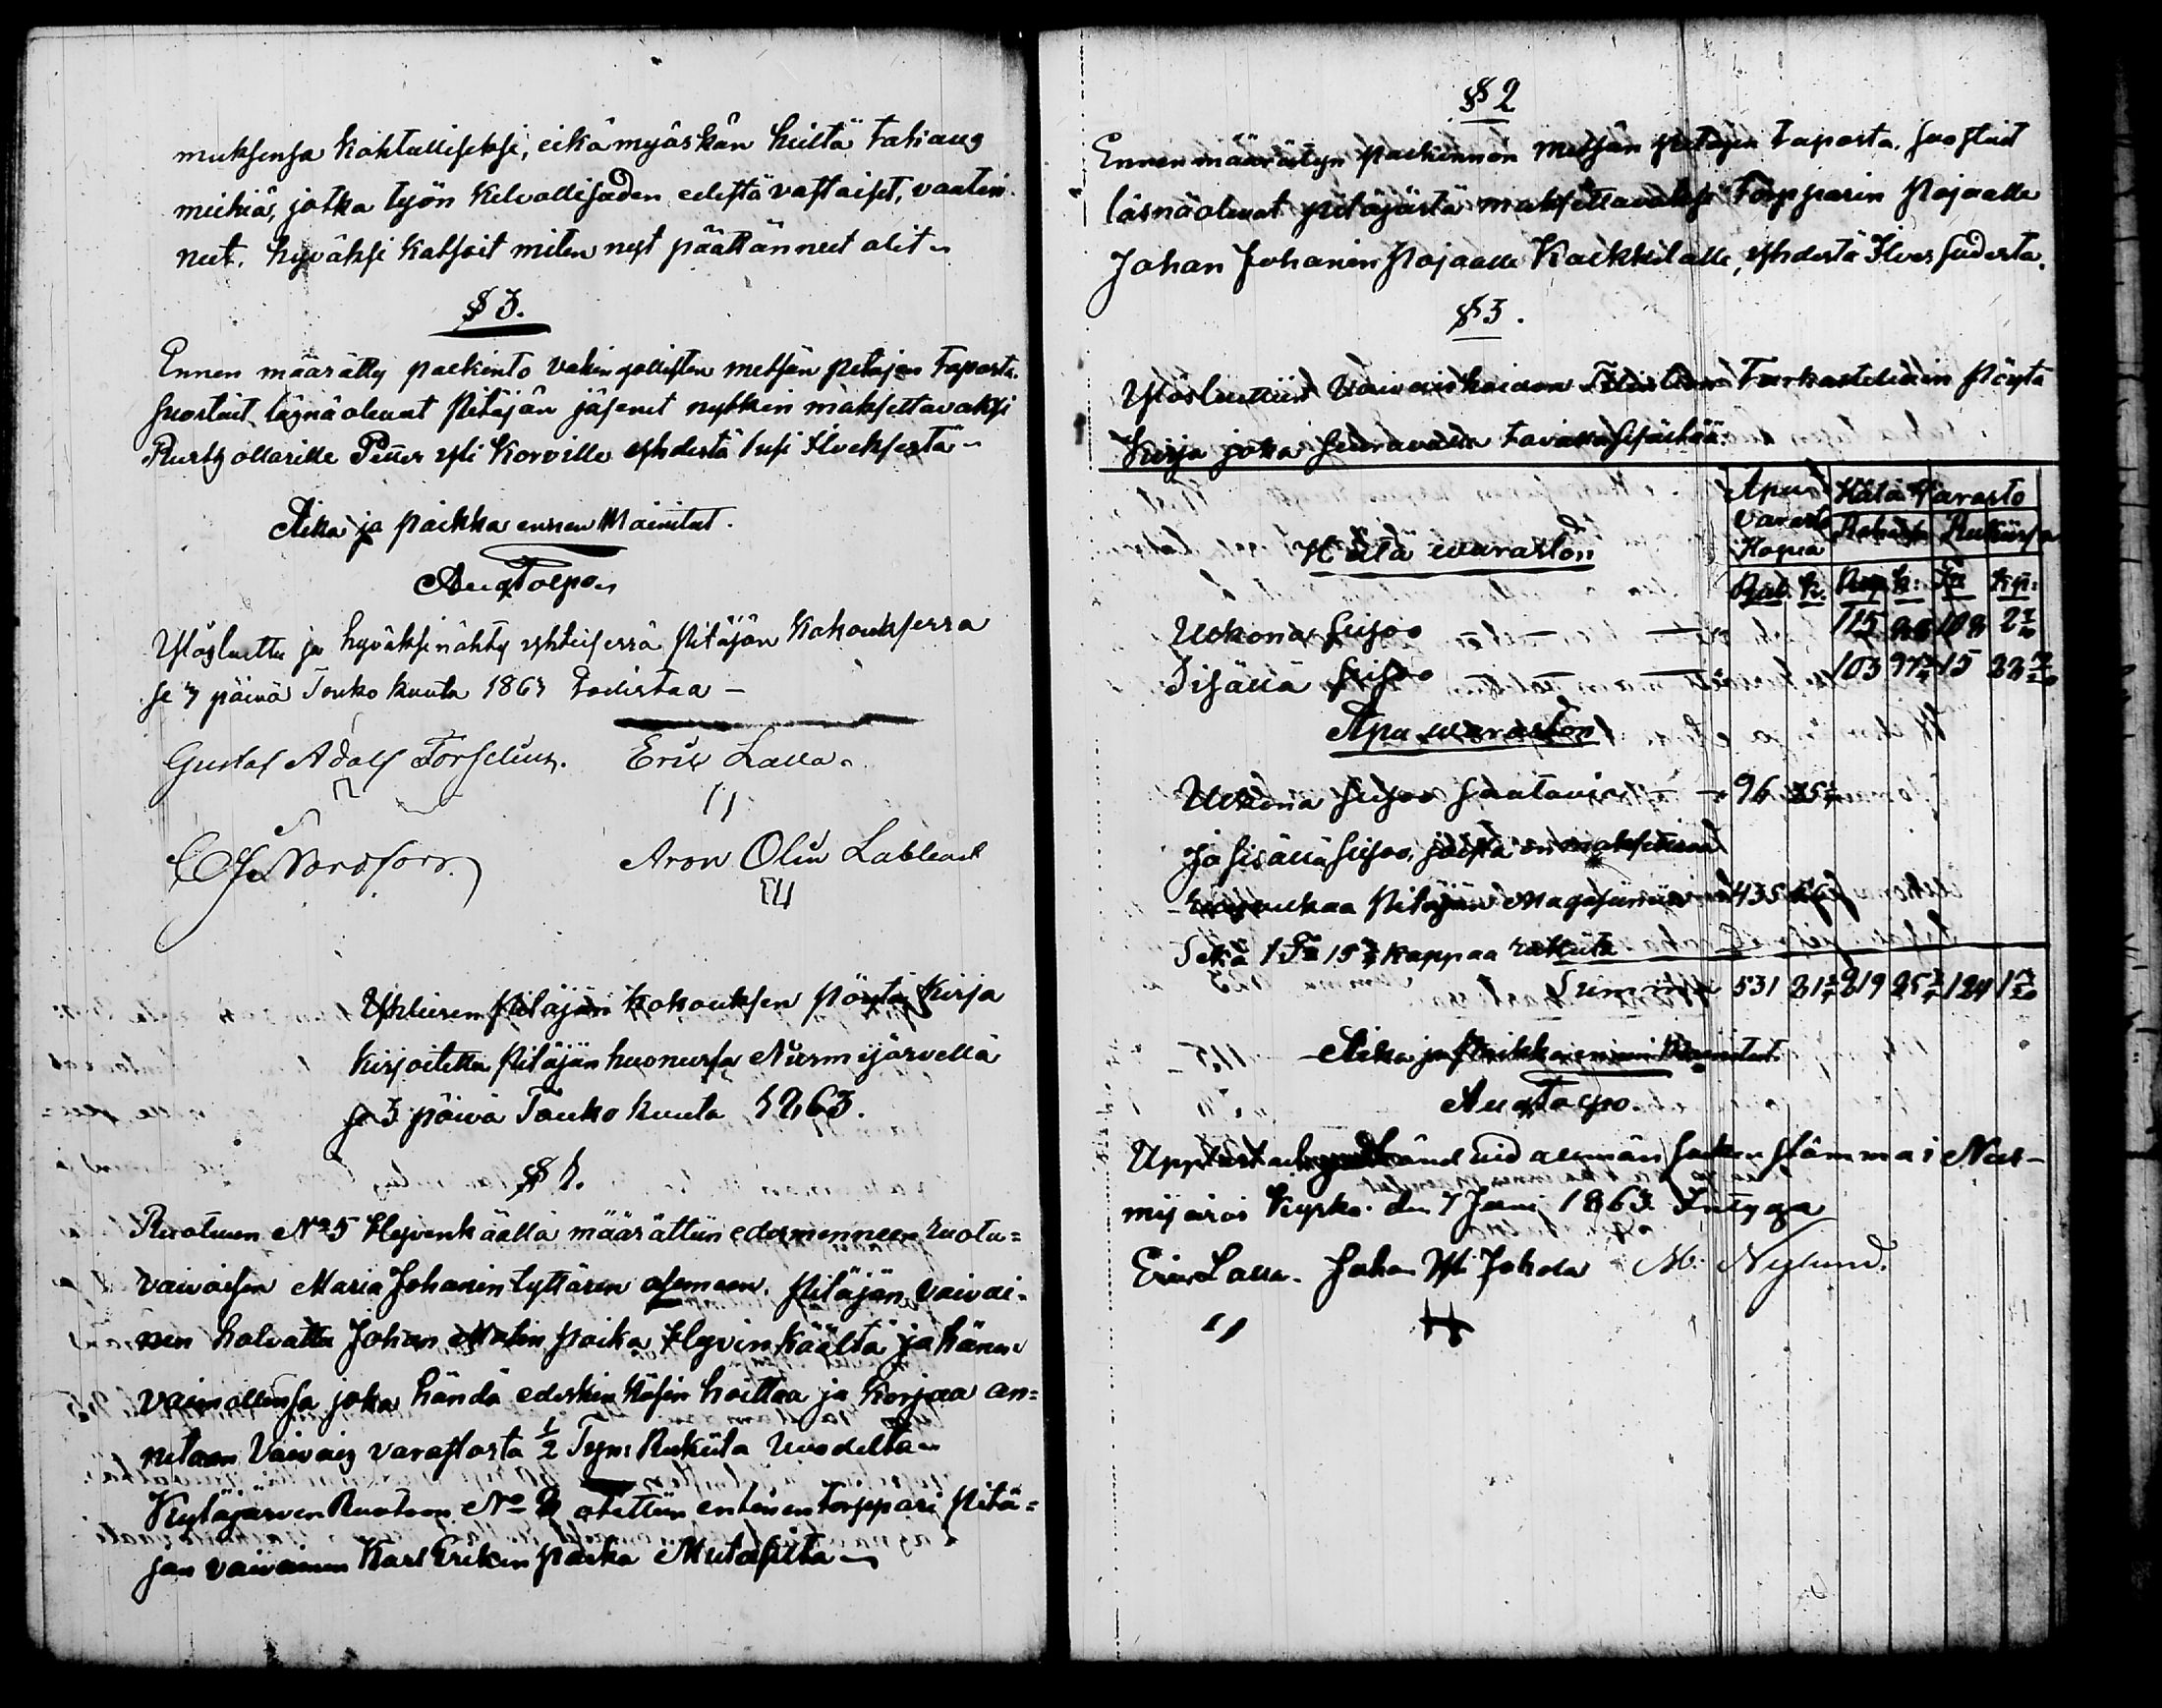 muksensa kohtulliseksi, eikä myöskän heiltä takaus
miehiä, jotka työn kelvollisuden edestä vastaiset, vaatin
neet, hyväksi katsoit miten nyt päättänneet olit
§ 3.
Ennen määrätty palkinto vahingollisten metsän petojen taposta
suostuit läsnä olevat Pitäjän jäsenet nytkin maksettavaksi
Rusthollarille Petter Yli Korville yhdestä susi Ilveksestä
Aika ja paikka ennen mainitut.
Aug Tolpo
Ylösluettu ja hyväksi nähty yhteisessä Pitäjän Kokouksessa
se 7 päivä Touko kuuta 1863 todistaa –
Gustaf Adolf Forselius. Erik Lalla.
Nordfors. Aron Olin Lableack
Yhteisen Pitäjän kokouksen pöytä Kirja
kirjoitettu Pitäjän huoneessa Nurmijärvellä
se 3 päivä Touko kuuta 1863.
§ 1.
Ruotuun No 5 Hyvinkäällä määrättiin edesmenneen ruotu=
vaivaisen Maria Johanin tyttären asemaan, Pitäjän vaivai-
nen halvattu Johan Matin poika Hyvinkäältä ja hänen
vaimollensa joka händä edeskin käsin hoittaa ja korjaa an=
netaan Vaivais varastosta ½ Tyn: Rukiita vuodelta
Kytäjärven Ruotuun No otettiin entinen torppari Pitä=
jän vaivainen Karl Erikin poika Mutasilta
§ 2
Ennen määrätyn palkinnon metsän petojen taposta, suostuit
läsnä olevat pitäjästä maksettavaksi Torpparin Pojalle
Johan Johanin Pojalle Kaikkilalle, yhdestä Ilves sudesta.
§ 3.
Ylösluettiin Vaivaishoidon Tilin Tarkastelian Pöytä
Kirja joka seuravalla tavalla sisältää:
Apu Hätä Varasto
Varasto Rahassa Rukiissa
Hopia
Rub. K. Rup K: Tu Kp:
Hätä waraston
Ulkona seisoo 115 108 2
Sisällä seisoo 103 97 15 22
Apu waraston
Ulkona seisoo saatavia 96 25
ja sisällä seisoo, josta on maksettavat
Pitäjän Magasiniin 435
Sekä 1 Tu 15 kappaa rukiita
Summa 531 21 219 25 124 1
Aika ja Paikka ennen Mainitut.
Aug Tolpo.
Uppläst och godkänd vid allmän sockenstämma i Nur-
mijärvi Kyrko. den 7 Juni 1863. Intyga
Eric Lalla. Johan Yli Johola M. Nylund.